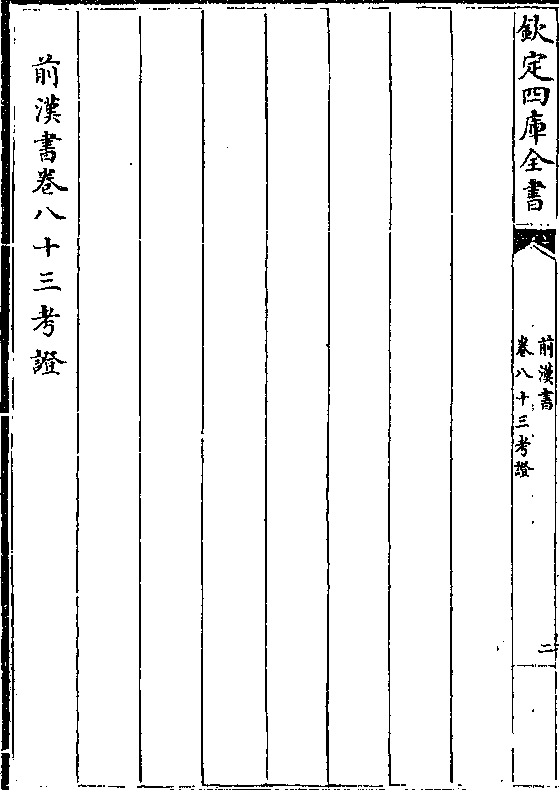 欽定四庫全書
前漢書
卷八十三考證
二
前漢書卷八十三考證